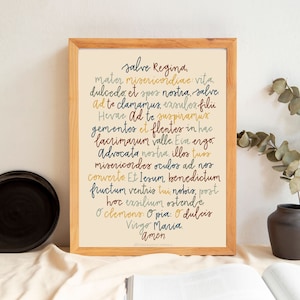 Salve Regina,
mater misericordiae: vita
dulcedo et spes nostra, salve
Ad te clamamus exsules filii
Hevae. Ad te suspiramus
gementes et flentes in hac
lacrimarum valle Eia ergo,
Advocata nostra illos tuos
misericordes oculos ad nos
converte Et Iesum benedictum
fructum ventris tui nobis, post
hoc exsilium ostende
O clemens O pia O dulcis
Virgo Maria
Amen